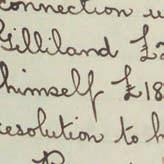 connection
Gilliland £2
himself £18
resolution to b